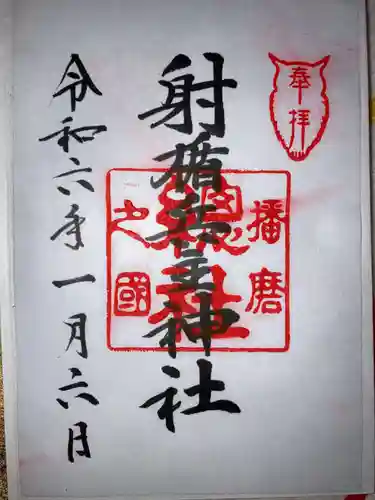 奉拝
射楯兵主神社
播磨
之國
令和六年一月六日